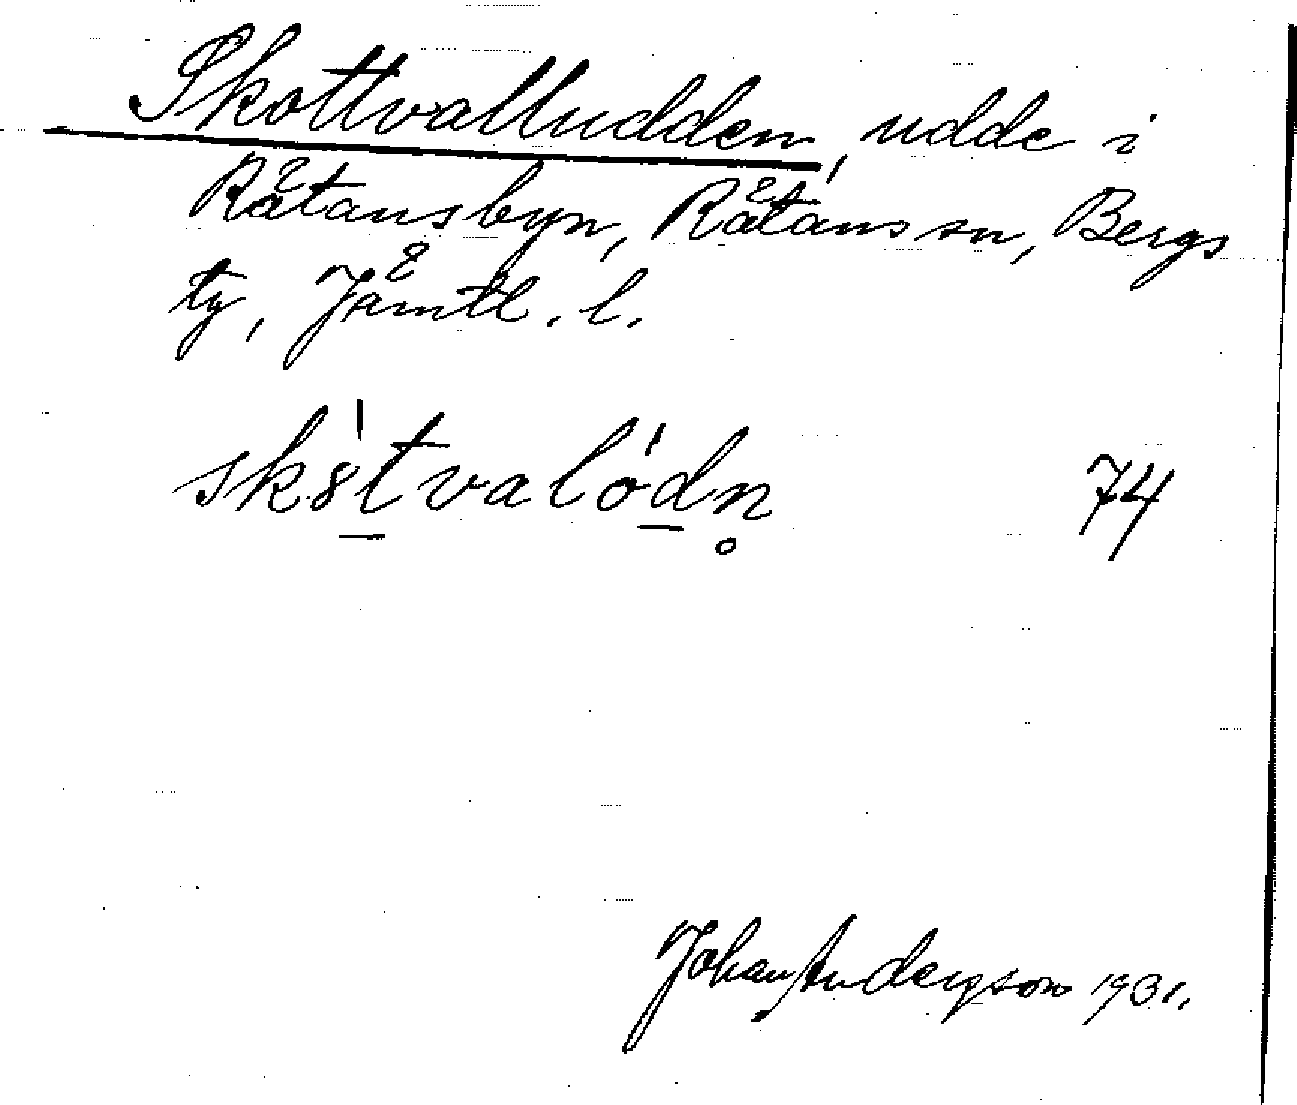 Skottvalludden, udde i
Rätansbyn, Rätans sn, Bergs
tg, Jämtl. l.
sk8̀tvalódn̥ 74
Johan Andersson 1931.